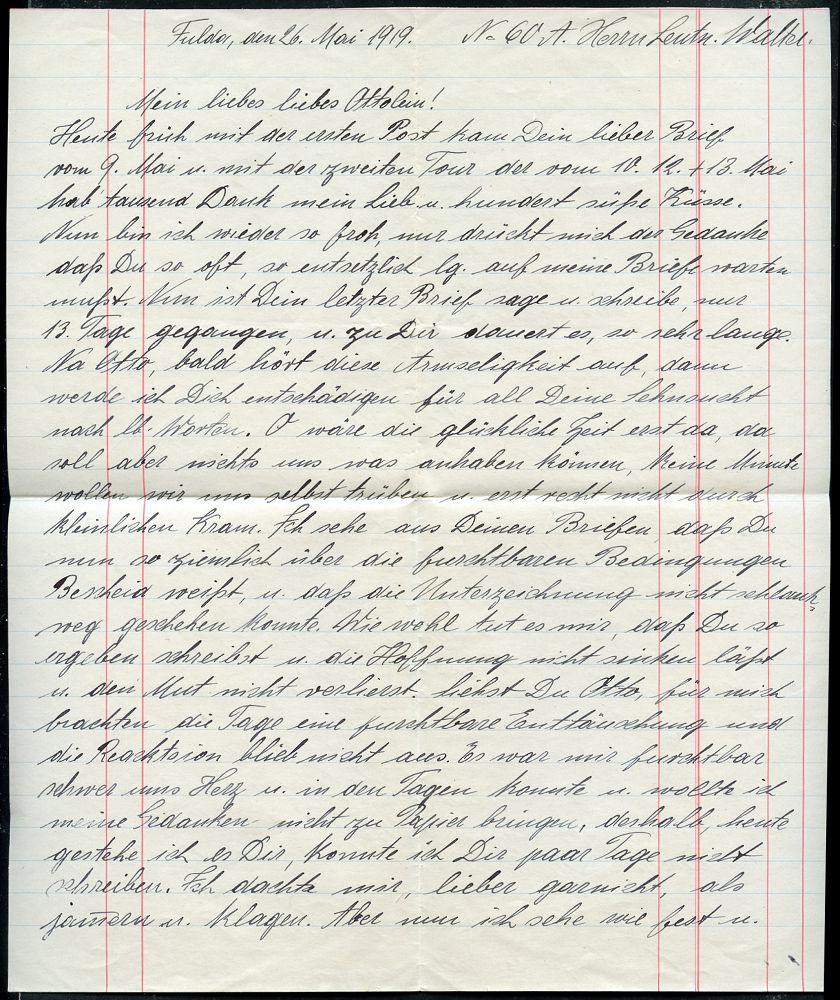 Fulda, den 26. Mai 1919. No 60 A. Herrn Leutn. Walke.
Mein liebes liebes Ottolein!
Heute früh mit der ersten Post kam Dein lieber Brief
vom 9. Mai u. mit der zweiten Tour der vom 10. 12. + 13. Mai
hab' tausend Dank mein Lieb u. hundert süße Küsse.
Nun bin ich wieder so froh, nur drückt mich der Gedanke
daß Du so oft, so entsetzlich lg. auf meine Briefe warten
mußt. Nun ist Dein letzter Brief sage u. schreibe, nur
13. Tage gegangen, u. zu Dir dauert es, so sehr lange.
Na Otto, bald hört diese Armseligkeit auf, dann
werde ich Dich entschädigen für all Deine Sehnsucht
nach lb. Worten. O wäre die glückliche Zeit erst da, da
soll aber nichts uns was anhaben können, keine Minute
wollen wir uns selbst trüben u. erst recht nicht durch
kleinlichen Kram. Ich sehe aus Deinen Briefen, daß Du
nun so ziemlich über die furchtbaren Bedingungen
Bescheid weißt, u. daß die Unterzeichnung nicht schlank-
weg geschehen konnte. Wie wohl tut es mir, daß Du so
ergeben schreibst u. die Hoffnung nicht sinken läßt
u. den Mut nicht verlierst. Siehst Du Otto, für mich
brachten die Tage eine furchtbare Enttäuschung und
die Reacktsion blieb nicht aus. Es war mir furchtbar
schwer ums Herz u. in den Tagen konnte u. wollte ich
meine Gedanken nicht zu Papier bringen, deshalb, heute
gestehe ich es Dir, konnte ich Dir paar Tage nicht
schreiben. Ich dachte mir, lieber garnicht, als
jam̄ern u. klagen. Aber nun ich sehe wie fest u.